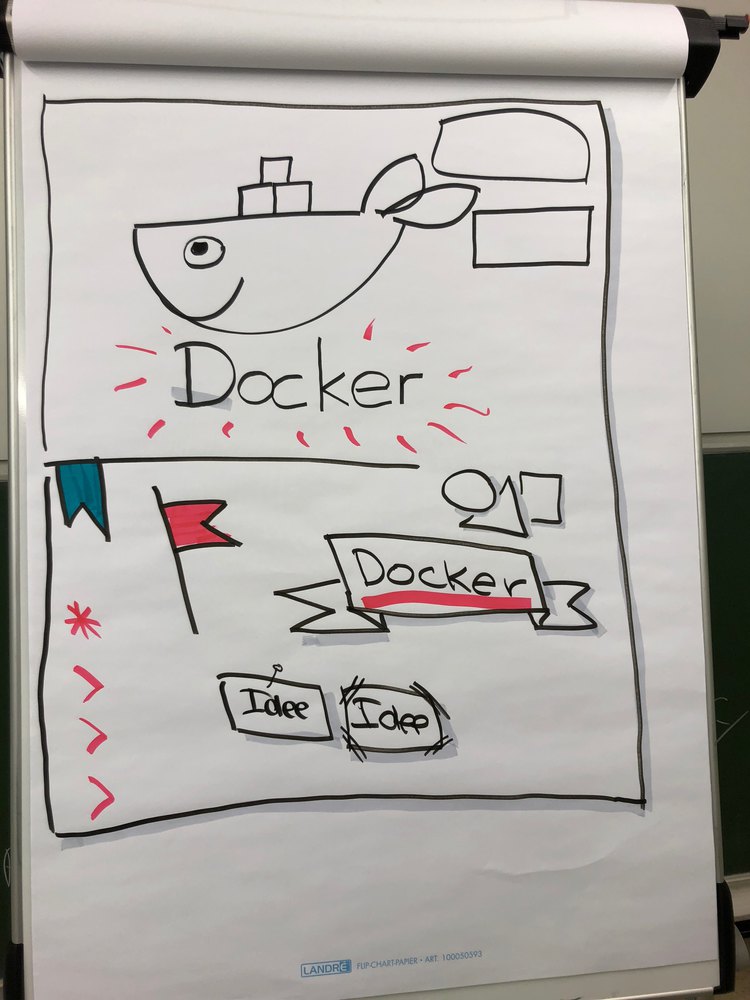 Docker
Docker
Idee Idee
LANDRÉ FLIP-CHART-PAPIER • ART. 100050593